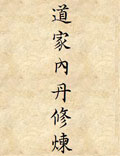 道家內丹修煉